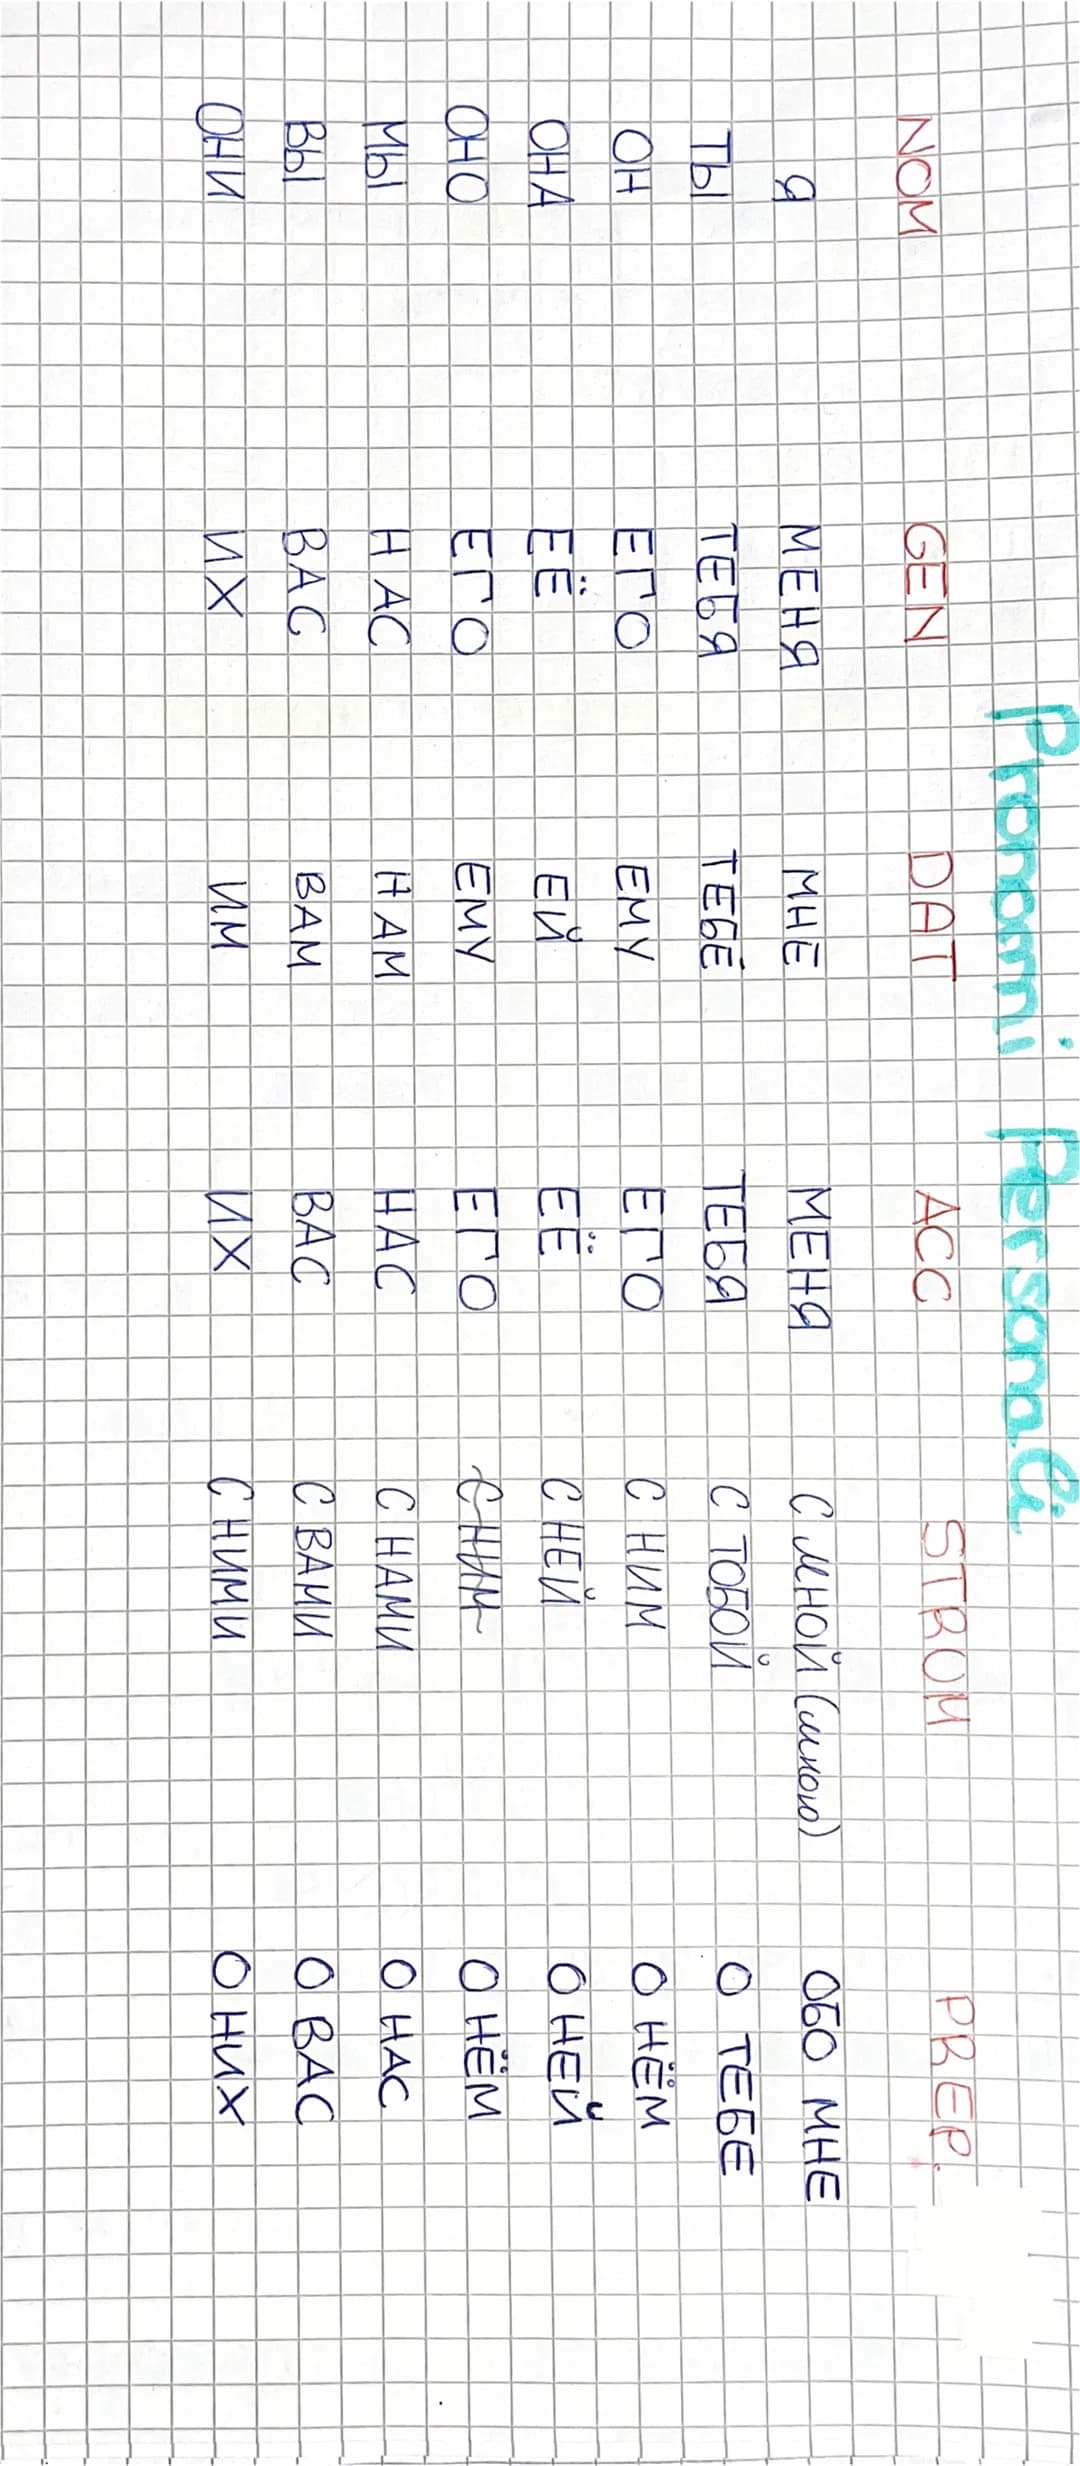 Pronomi Personali
NOM GEN DAT ACC STROM PREP.
Я МЕНЯ МНЕ МЕНЯ С МНОЙ (мною) ОБО МНЕ
ТЫ ТЕБЯ ТЕБЕ ТЕБЯ С ТОБОЙ О ТЕБЕ
ОН ЕГО ЕМУ ЕГО С НИМ О НЁМ
ОНА ЕЁ ЕЙ ЕЁ С НЕЙ О НЕЙ
ОНО ЕГО ЕМУ ЕГО С НИМ О НЁМ
МЫ НАС НАМ НАС С НАМИ О НАС
ВЫ ВАС ВАМ ВАС С ВАМИ О ВАС
ОНИ ИХ ИМ ИХ С НИМИ О НИХ